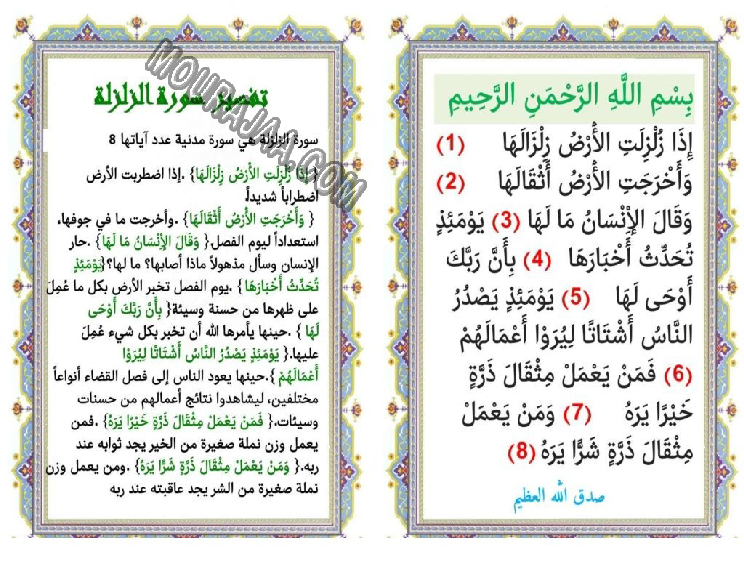 بِسْمِ اللَّهِ الرَّحْمَنِ الرَّحِيمِ
إِذَا زُلْزِلَتِ الْأَرْضُ زِلْزَالَهَا (1)
وَأَخْرَجَتِ الْأَرْضُ أَثْقَالَهَا (2)
وَقَالَ الْإِنْسَانُ مَا لَهَا (3) يَوْمَئِذٍ
تُحَدِّثُ أَخْبَارَهَا (4) بِأَنَّ رَبَّكَ
أَوْحَى لَهَا (5) يَوْمَئِذٍ يَصْدُرُ
النَّاسُ أَشْتَاتًا لِيُرَوْا أَعْمَالَهُمْ
(6) فَمَنْ يَعْمَلْ مِثْقَالَ ذَرَّةٍ
خَيْرًا يَرَهُ (7) وَمَنْ يَعْمَلْ
مِثْقَالَ ذَرَّةٍ شَرًّا يَرَهُ (8)
صدق الله العظيم
تفسير سورة الزلزلة
سورة الزلزلة هي سورة مدنية عدد آياتها 8
{ إِذَا زُلْزِلَتِ الْأَرْضُ زِلْزَالَهَا} .إذا اضطربت الأرض
اضطراباً شديداً.
{ وَأَخْرَجَتِ الْأَرْضُ أَثْقَالَهَا} .وأخرجت ما في جوفها،
استعداداً ليوم الفصل.{ وَقَالَ الْإِنْسَانُ مَا لَهَا} .حار
الإنسان وسأل مذهولاً ماذا أصابها؟ ما لها؟{يَوْمَئِذٍ
تُحَدِّثُ أَخْبَارَهَا} .يوم الفصل تخبر الأرض بكل ما عُمِلَ
على ظهرها من حسنة وسيئة{ بِأَنَّ رَبَّكَ أَوْحَى
لَهَا} .حينها يأمرها الله أن تخبر بكل شيء عُمِلَ
عليها.{ يَوْمَئِذٍ يَصْدُرُ النَّاسُ أَشْتَاتًا لِيُرَوْا
أَعْمَالَهُمْ }.حينها يعود الناس إلى فصل القضاء أنواعاً
مختلفين، ليشاهدوا نتائج أعمالهم من حسنات
وسيئات.{ فَمَنْ يَعْمَلْ مِثْقَالَ ذَرَّةٍ خَيْرًا يَرَهُ} .فمن
يعمل وزن نملة صغيرة من الخير يجد ثوابه عند
ربه.{ وَمَنْ يَعْمَلْ مِثْقَالَ ذَرَّةٍ شَرًّا يَرَهُ} .ومن يعمل وزن
نملة صغيرة من الشر يجد عاقبته عند ربه
MOURAJAA.COM